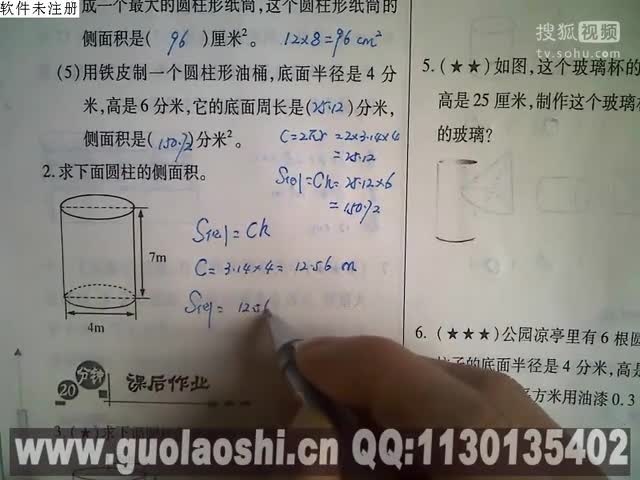 软件未注册
成一个最大的圆柱形纸筒,这个圆柱形纸筒的
侧面积是( 96 )厘米²。 12×8=96 cm²
(5)用铁皮制一个圆柱形油桶,底面半径是 4 分
米,高是 6 分米,它的底面周长是(25.12)分米,
侧面积是(150.72)分米²。
C=2πr=2×3.14×4
=25.12
S侧=Ch=25.12×6
=150.72
2. 求下面圆柱的侧面积。
7m
4m
S侧=Ch
C=3.14×4=12.56 m
S侧= 12.56
20分钟 课后作业
3. (★)求下面圆
搜狐视频
tv.sohu.com
5. (★★)如图,这个玻璃杯的
高是 25 厘米,制作这个玻璃杯
的玻璃?
6. (★★★)公园凉亭里有 6 根圆
柱子的底面半径是 4 分米,高是
平方米用油漆 0.3
www.guolaoshi.cn QQ:1130135402